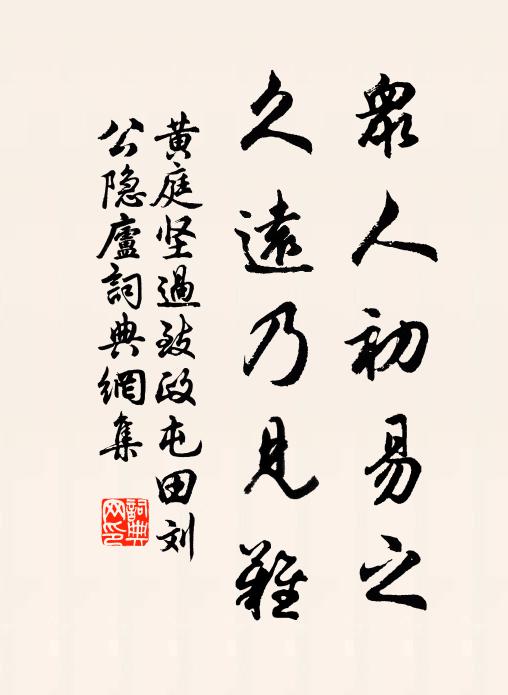 眾人初易之
久遠乃見難
黄庭坚過致政屯田刘
公隐廬詞典網集
詞典
网印